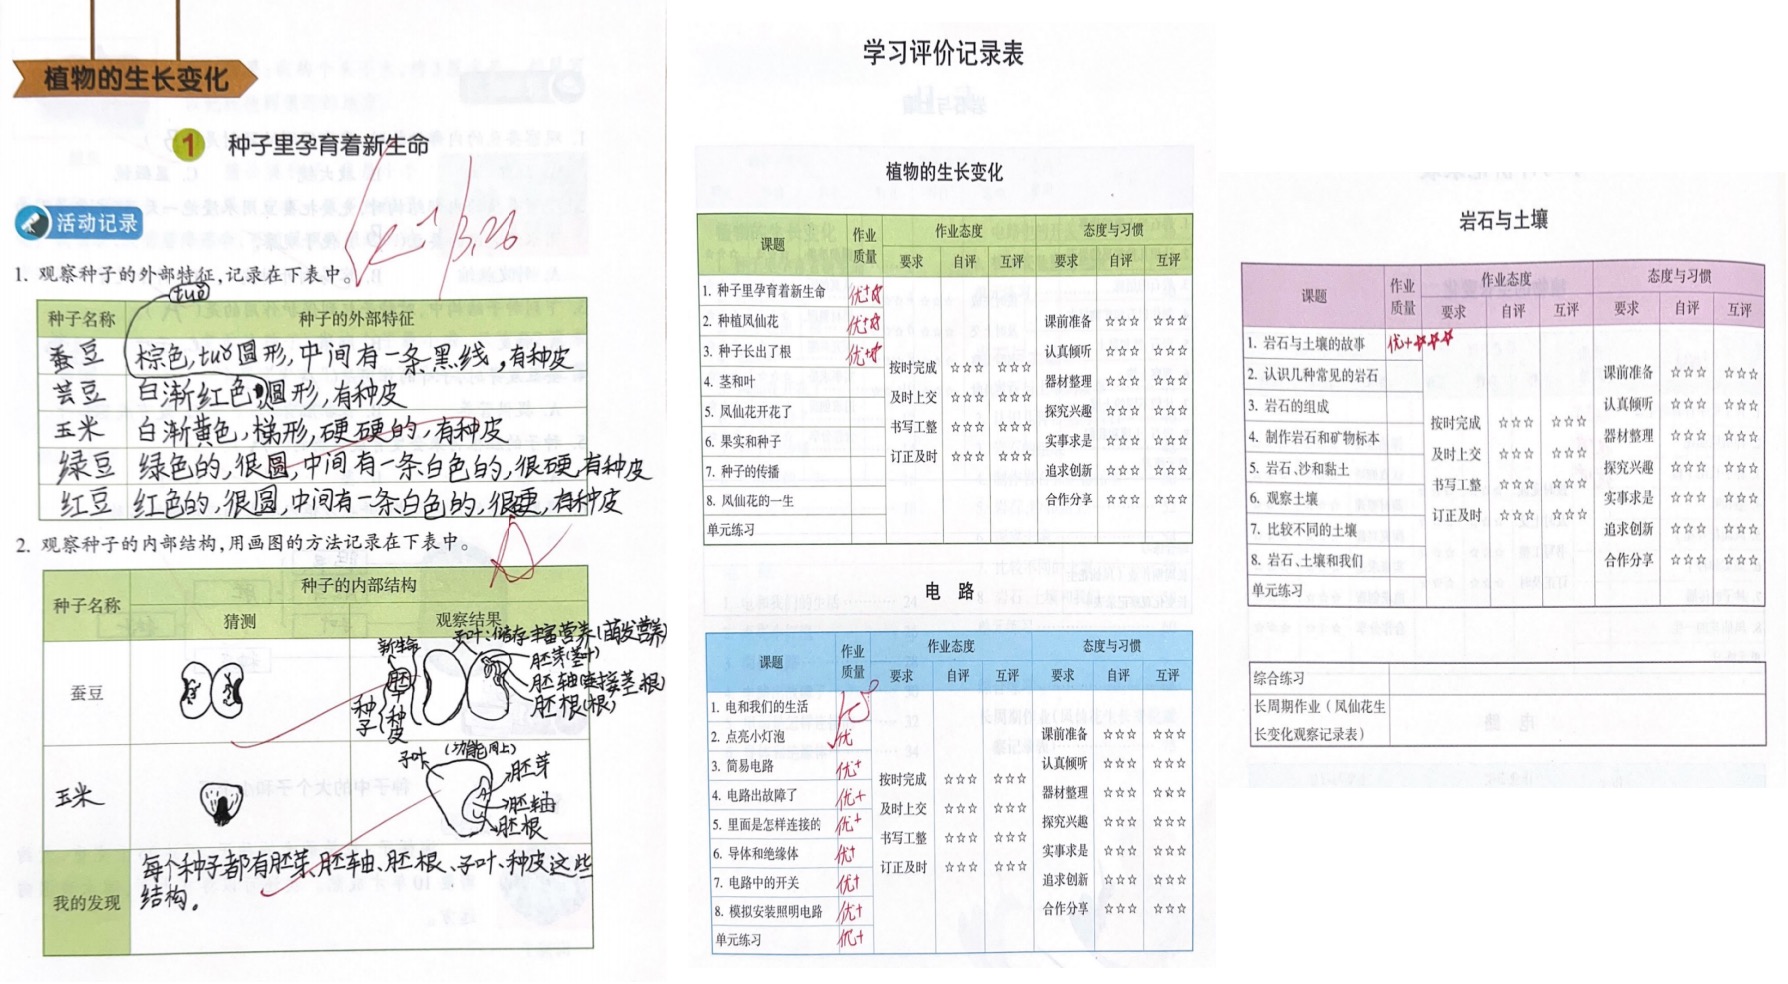 植物的生长变化
1 种子里孕育着新生命
活动记录
3.26
1. 观察种子的外部特征,记录在下表中。
tuǒ
种子名称 种子的外部特征
蚕豆 棕色,tuǒ圆形,中间有一条黑线,有种皮
芸豆 白渐红色圆形,有种皮
玉米 白渐黄色,梯形,硬硬的,有种皮
绿豆 绿色的,很圆,中间有一条白色的,很硬,有种皮
红豆 红色的,很圆,中间有一条白色的,很硬,有种皮
2. 观察种子的内部结构,用画图的方法记录在下表中。
种子名称 种子的内部结构
猜测 观察结果
蚕豆
新生命
子叶:储存丰富营养(萌发营养)
胚芽(茎叶)
胚轴(连接茎根)
胚根(根)
胚
种子
种皮
玉米
子叶
(功能同上)
胚芽
胚轴
胚根
我的发现 每个种子都有胚芽、胚轴、胚根、子叶、种皮这些
结构。
学习评价记录表
植物的生长变化
课题 作业质量 作业态度 态度与习惯
要求 自评 互评 要求 自评 互评
1. 种子里孕育着新生命 优+☆
2. 种植凤仙花 优+☆
3. 种子长出了根 优+☆
4. 茎和叶
5. 凤仙花开花了
6. 果实和种子
7. 种子的传播
8. 凤仙花的一生
单元练习
按时完成 ☆☆☆ ☆☆☆
及时上交 ☆☆☆ ☆☆☆
书写工整 ☆☆☆ ☆☆☆
订正及时 ☆☆☆ ☆☆☆
课前准备 ☆☆☆ ☆☆☆
认真倾听 ☆☆☆ ☆☆☆
器材整理 ☆☆☆ ☆☆☆
探究兴趣 ☆☆☆ ☆☆☆
实事求是 ☆☆☆ ☆☆☆
追求创新 ☆☆☆ ☆☆☆
合作分享 ☆☆☆ ☆☆☆
电 路
课题 作业质量 作业态度 态度与习惯
要求 自评 互评 要求 自评 互评
1. 电和我们的生活
2. 点亮小灯泡 优
3. 简易电路 优+
4. 电路出故障了 优+
5. 里面是怎样连接的 优+
6. 导体和绝缘体 优+
7. 电路中的开关 优+
8. 模拟安装照明电路 优+
单元练习 优+
按时完成 ☆☆☆ ☆☆☆
及时上交 ☆☆☆ ☆☆☆
书写工整 ☆☆☆ ☆☆☆
订正及时 ☆☆☆ ☆☆☆
课前准备 ☆☆☆ ☆☆☆
认真倾听 ☆☆☆ ☆☆☆
器材整理 ☆☆☆ ☆☆☆
探究兴趣 ☆☆☆ ☆☆☆
实事求是 ☆☆☆ ☆☆☆
追求创新 ☆☆☆ ☆☆☆
合作分享 ☆☆☆ ☆☆☆
岩石与土壤
课题 作业质量 作业态度 态度与习惯
要求 自评 互评 要求 自评 互评
1. 岩石与土壤的故事 优+☆☆☆
2. 认识几种常见的岩石
3. 岩石的组成
4. 制作岩石和矿物标本
5. 岩石、沙和黏土
6. 观察土壤
7. 比较不同的土壤
8. 岩石、土壤和我们
单元练习
按时完成 ☆☆☆ ☆☆☆
及时上交 ☆☆☆ ☆☆☆
书写工整 ☆☆☆ ☆☆☆
订正及时 ☆☆☆ ☆☆☆
课前准备 ☆☆☆ ☆☆☆
认真倾听 ☆☆☆ ☆☆☆
器材整理 ☆☆☆ ☆☆☆
探究兴趣 ☆☆☆ ☆☆☆
实事求是 ☆☆☆ ☆☆☆
追求创新 ☆☆☆ ☆☆☆
合作分享 ☆☆☆ ☆☆☆
综合练习
长周期作业(凤仙花生
长变化观察记录表)